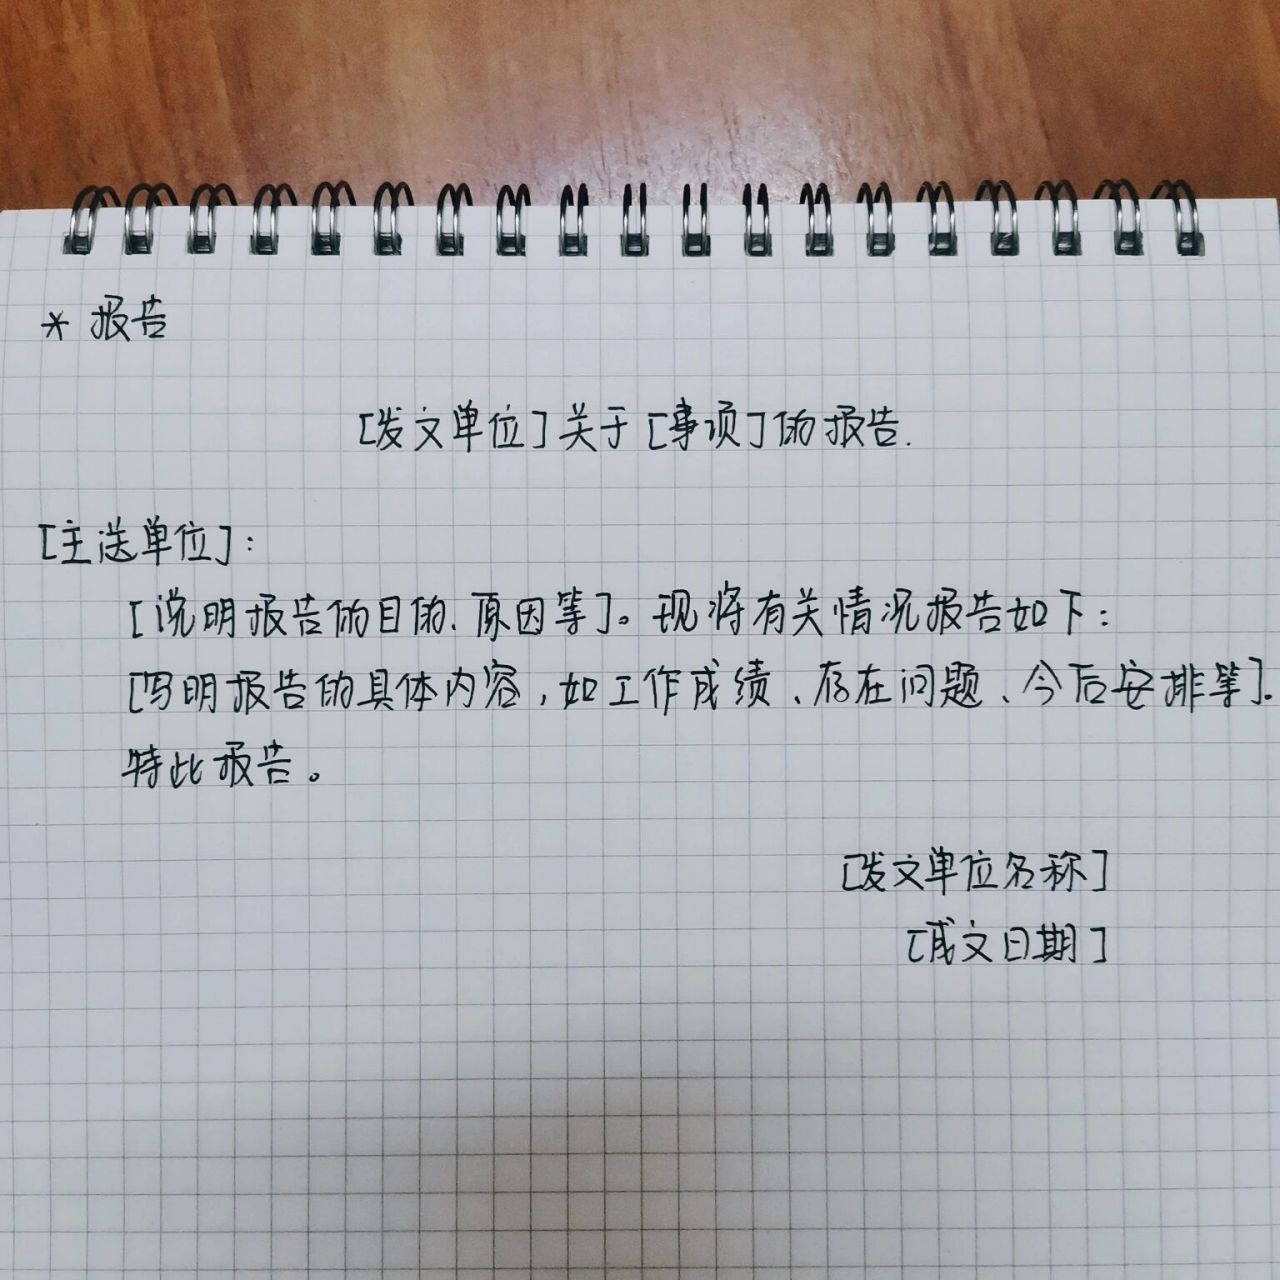 * 报告
[发文单位]关于[事项]的报告.
[主送单位]:
[说明报告的目的、原因等]。现将有关情况报告如下:
[写明报告的具体内容,如工作成绩、存在问题、今后安排等].
特此报告。
[发文单位名称]
[成文日期]